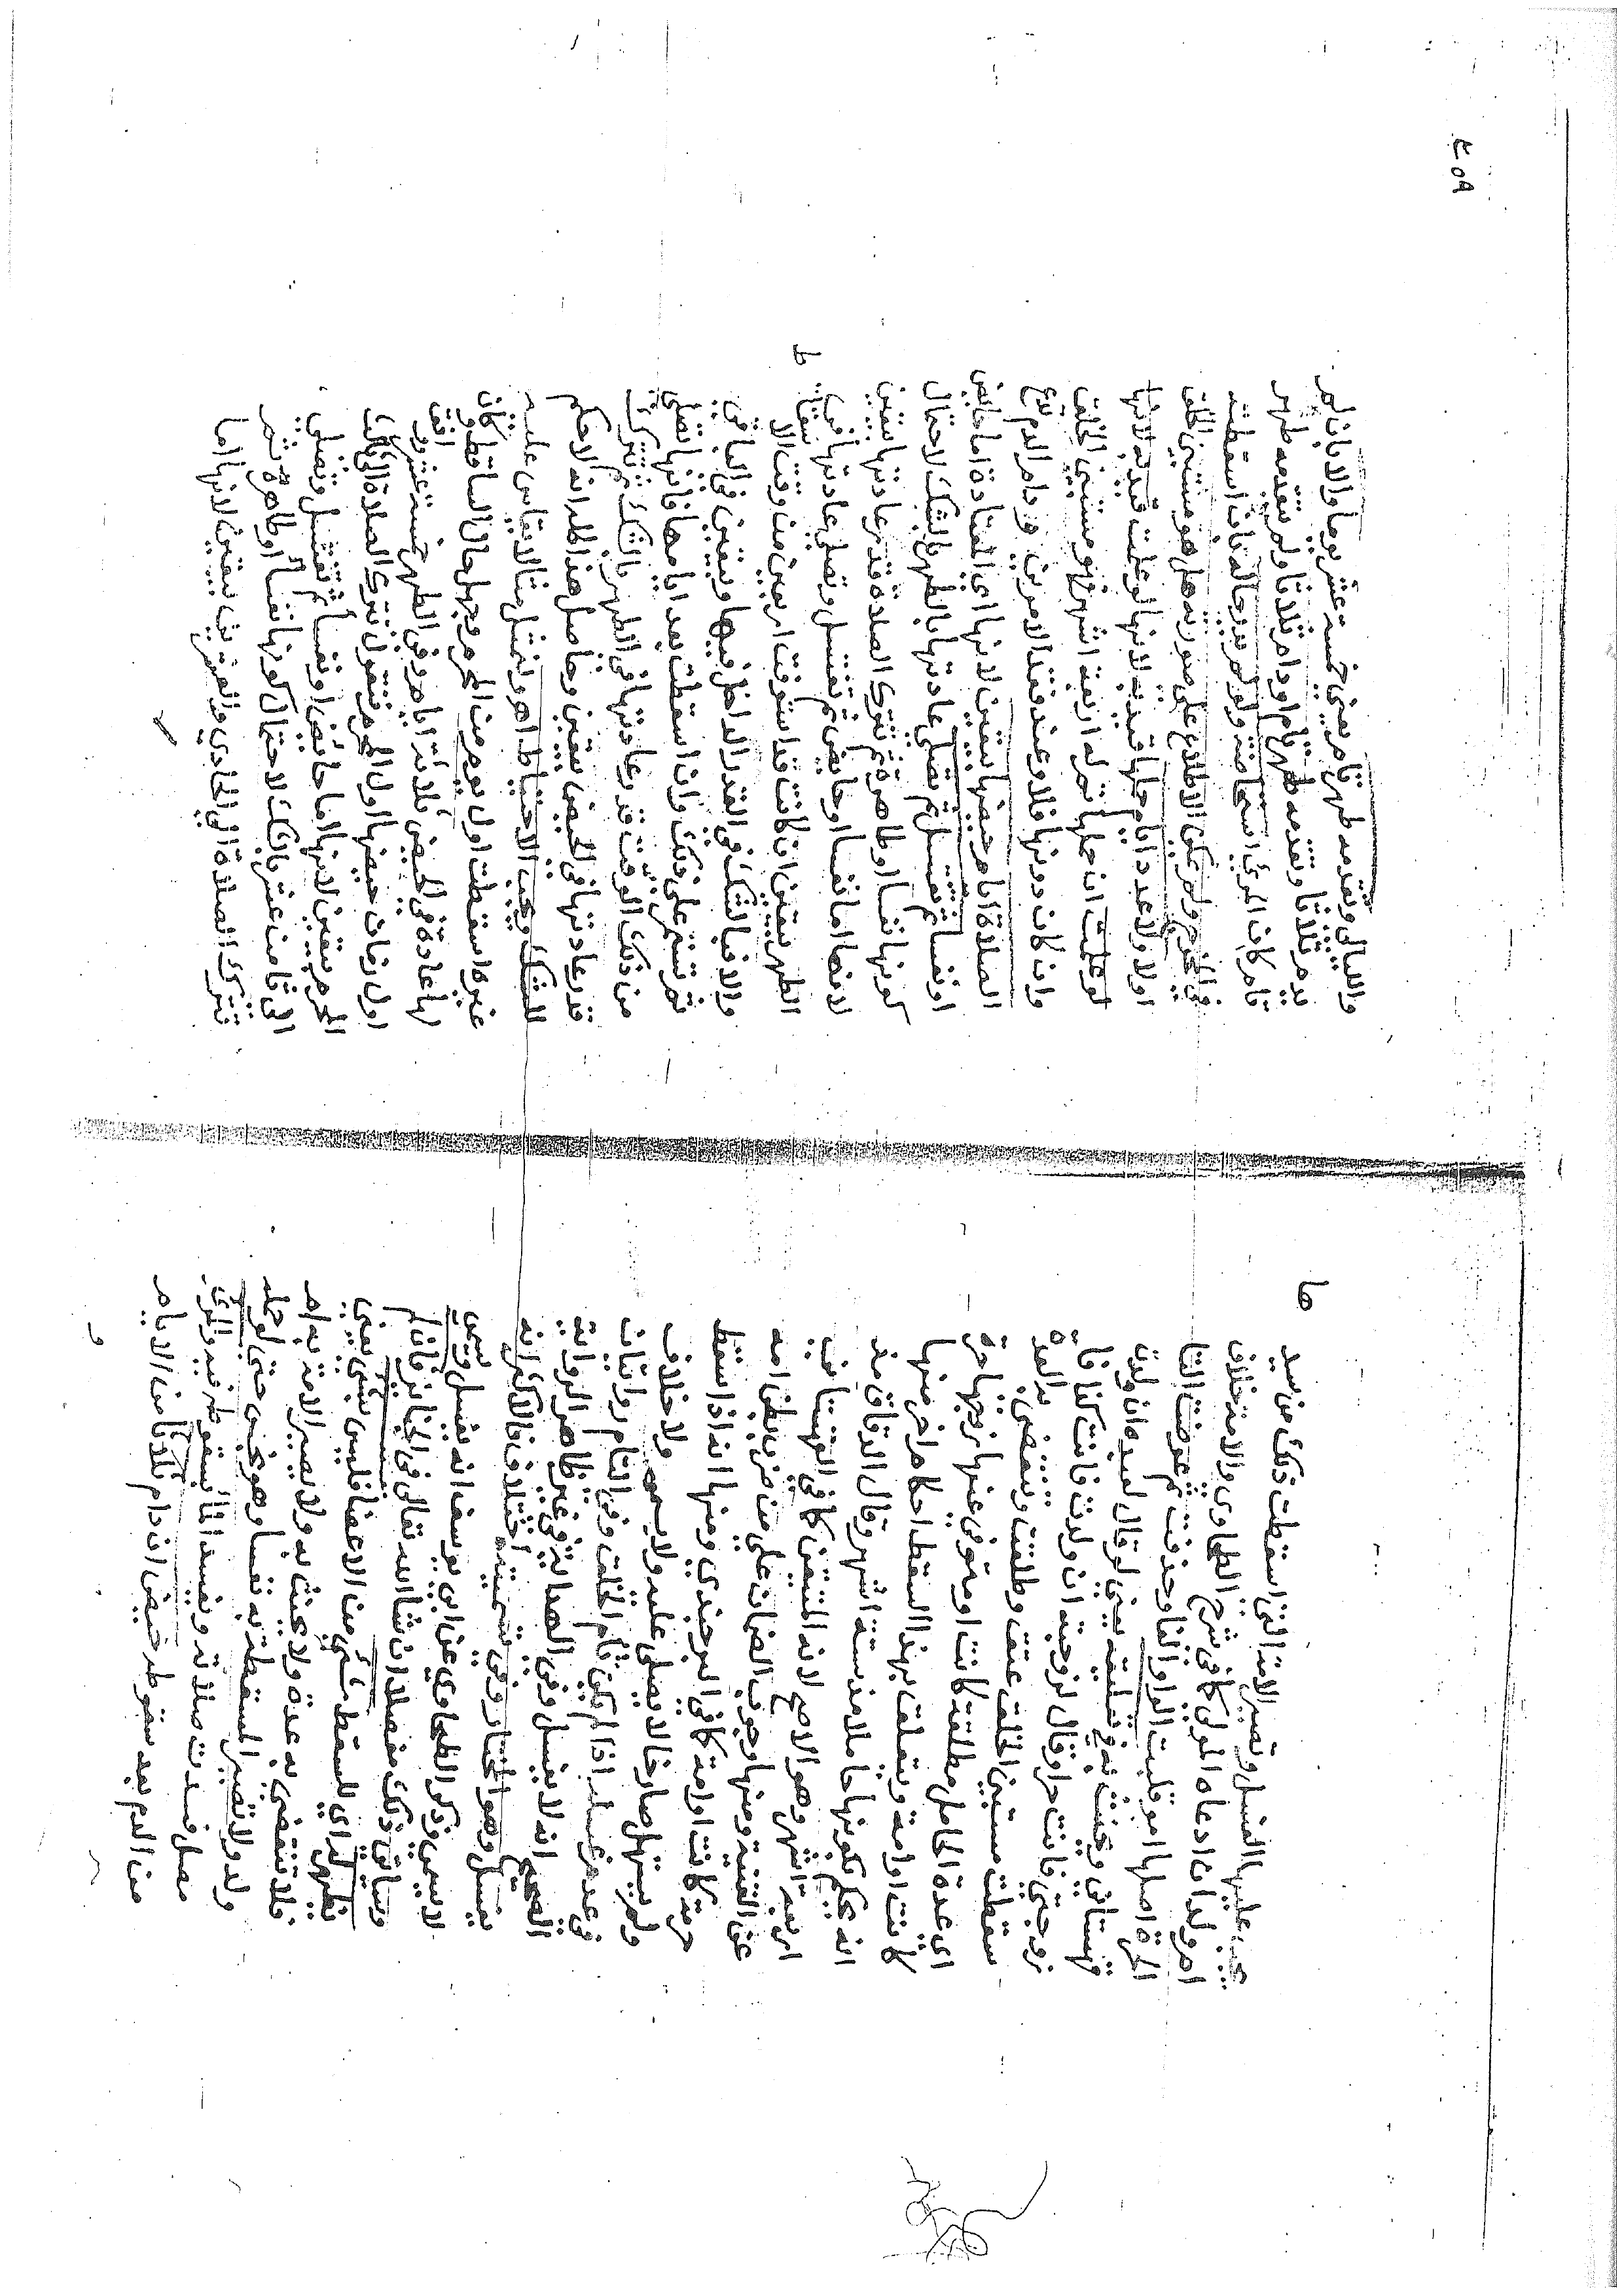 ها
يجب عليها الغسل وتصير الامة التي اسقطت ذلك من سيد
ام ولد ان ادعاه المولى كما في شرح الطحاوي والامة خلاف
الحرة اصلها امو قلبت الواو الفا وحذفت ثم عوضت التا
قهستاني ويحنث به في تعليقه يعني لو قال لعبده ان ولدت
زوجتي فانت حر او قال لزوجته ان ولدت فانت كذا فا
سقطت مستبين الخلق عتق وطلقت وتنقضي به العدة
اي عدة الحامل مطلقة كانت او متوفى عنها زوجها حرة
كانت او امة وتتعلق بهذا السقط احكام اخر منها
انه يحكم بكونها حاملا مذ ستة اشهر وقال الدقاق مذ
اربعة اشهر وهو الاصح لانه المتيقن كما في القهستاني
عن القنية ومنها وجوب الضمان على من ضرب بطن امه
حرة كانت او امة كما في البرجندي ومنها انه اذا سقط
ولم يستهل صارخا لا يصلى عليه ولا يسمى ولا خلاف
في عدم غسله اذا لم يكن تام الخلق وفي التام روايتان
الصحيح انه لا يغسل وفي الهداية في غير ظاهر الرواية
يغسل وهو المختار وفي تسميته اختلاف والاكثر انه
لا يسمى وذكر الطحاوي عن ابي يوسف انه يغسل ويسمى
وسياتي ذلك مفصلا ان شا الله تعالى في الجنايز فان لم
يظهر له اي للسقط شي من الاعضا فليس بشي يعني
فلا تنقضي به عدة ولا يحنث به ولا يصير الامة به ام
ولد ولا تصير المسقطة به نفسا وهو حتى لو
فسدت صلاته سقوطه فيه والمرئي
من الدم بعد سقوطه حيض ان دام ثلاثا من الايام
٤٥٩
والليالي وتقدمه طهر تام يعني خمسة عشر يوما والا بان لم
يدم ثلاثا وتقدمه طهر تام او دام ثلاثا ولم يتقدمه طهر
تام كان المرئي استحاضة ولو لم يدر حاله بان اسقطت
في المخرج ولم يمكن الاطلاع على صورته هل هو مستبين الخلق
اولا ولا عدد ايام حملها قيد به لانها لو علمت قيد به لانها
لو علمت ان حملها تم له اربعة اشهر فهو مستبين الخلق
وان كان دونها فلا وعند فقد الامرين ودام الدم تدع
الصلاة ايام حيضها بيقين لانها اي المعتادة اما حايض
او نفسا ثم تغتسل ثم تصلي عادتها بالطهر بالشك لاحتمال
كونها نفسا او طاهرة ثم تترك الصلاة قدر عادتها بيقين
لانها اما نفسا او حايض ثم تغتسل وتصلي عادتها في
الطهر بيقين ان كانت قد استوفت اربعين من وقت الا
سقاط
والا فبالشك في القدر الداخل فيها وبيقين في الباقي
ثم تستمر على ذلك وان اسقطت بعد ايامها فانها تصلي
من ذلك الوقت قدر عادتها في الطهر بالشك ثم تترك
قدر عادتها في الحيض بيقين وحاصل هذا كله انه لا حكم
للشك ويجب الاحتياط اهـ ولنمثل مثالا يقاس عليه
غيره اسقطت اول يوم من المحرم وجهل حال الساقط وكان
لها عادة في الحيض ثلاثة ايام وفي الطهر خمسة عشر ووافق
اول زمان حيضها اول المحرم فنقول تترك الصلاة الى ثالث
المحرم بيقين لانها اما حايض او نفسا ثم تغتسل وتصلي
الى ثامن عشر بالشك لاحتمال كونها نفسا او طاهرة ثم
تترك الصلاة الى الحادي والعشرين بيقين لانها اما